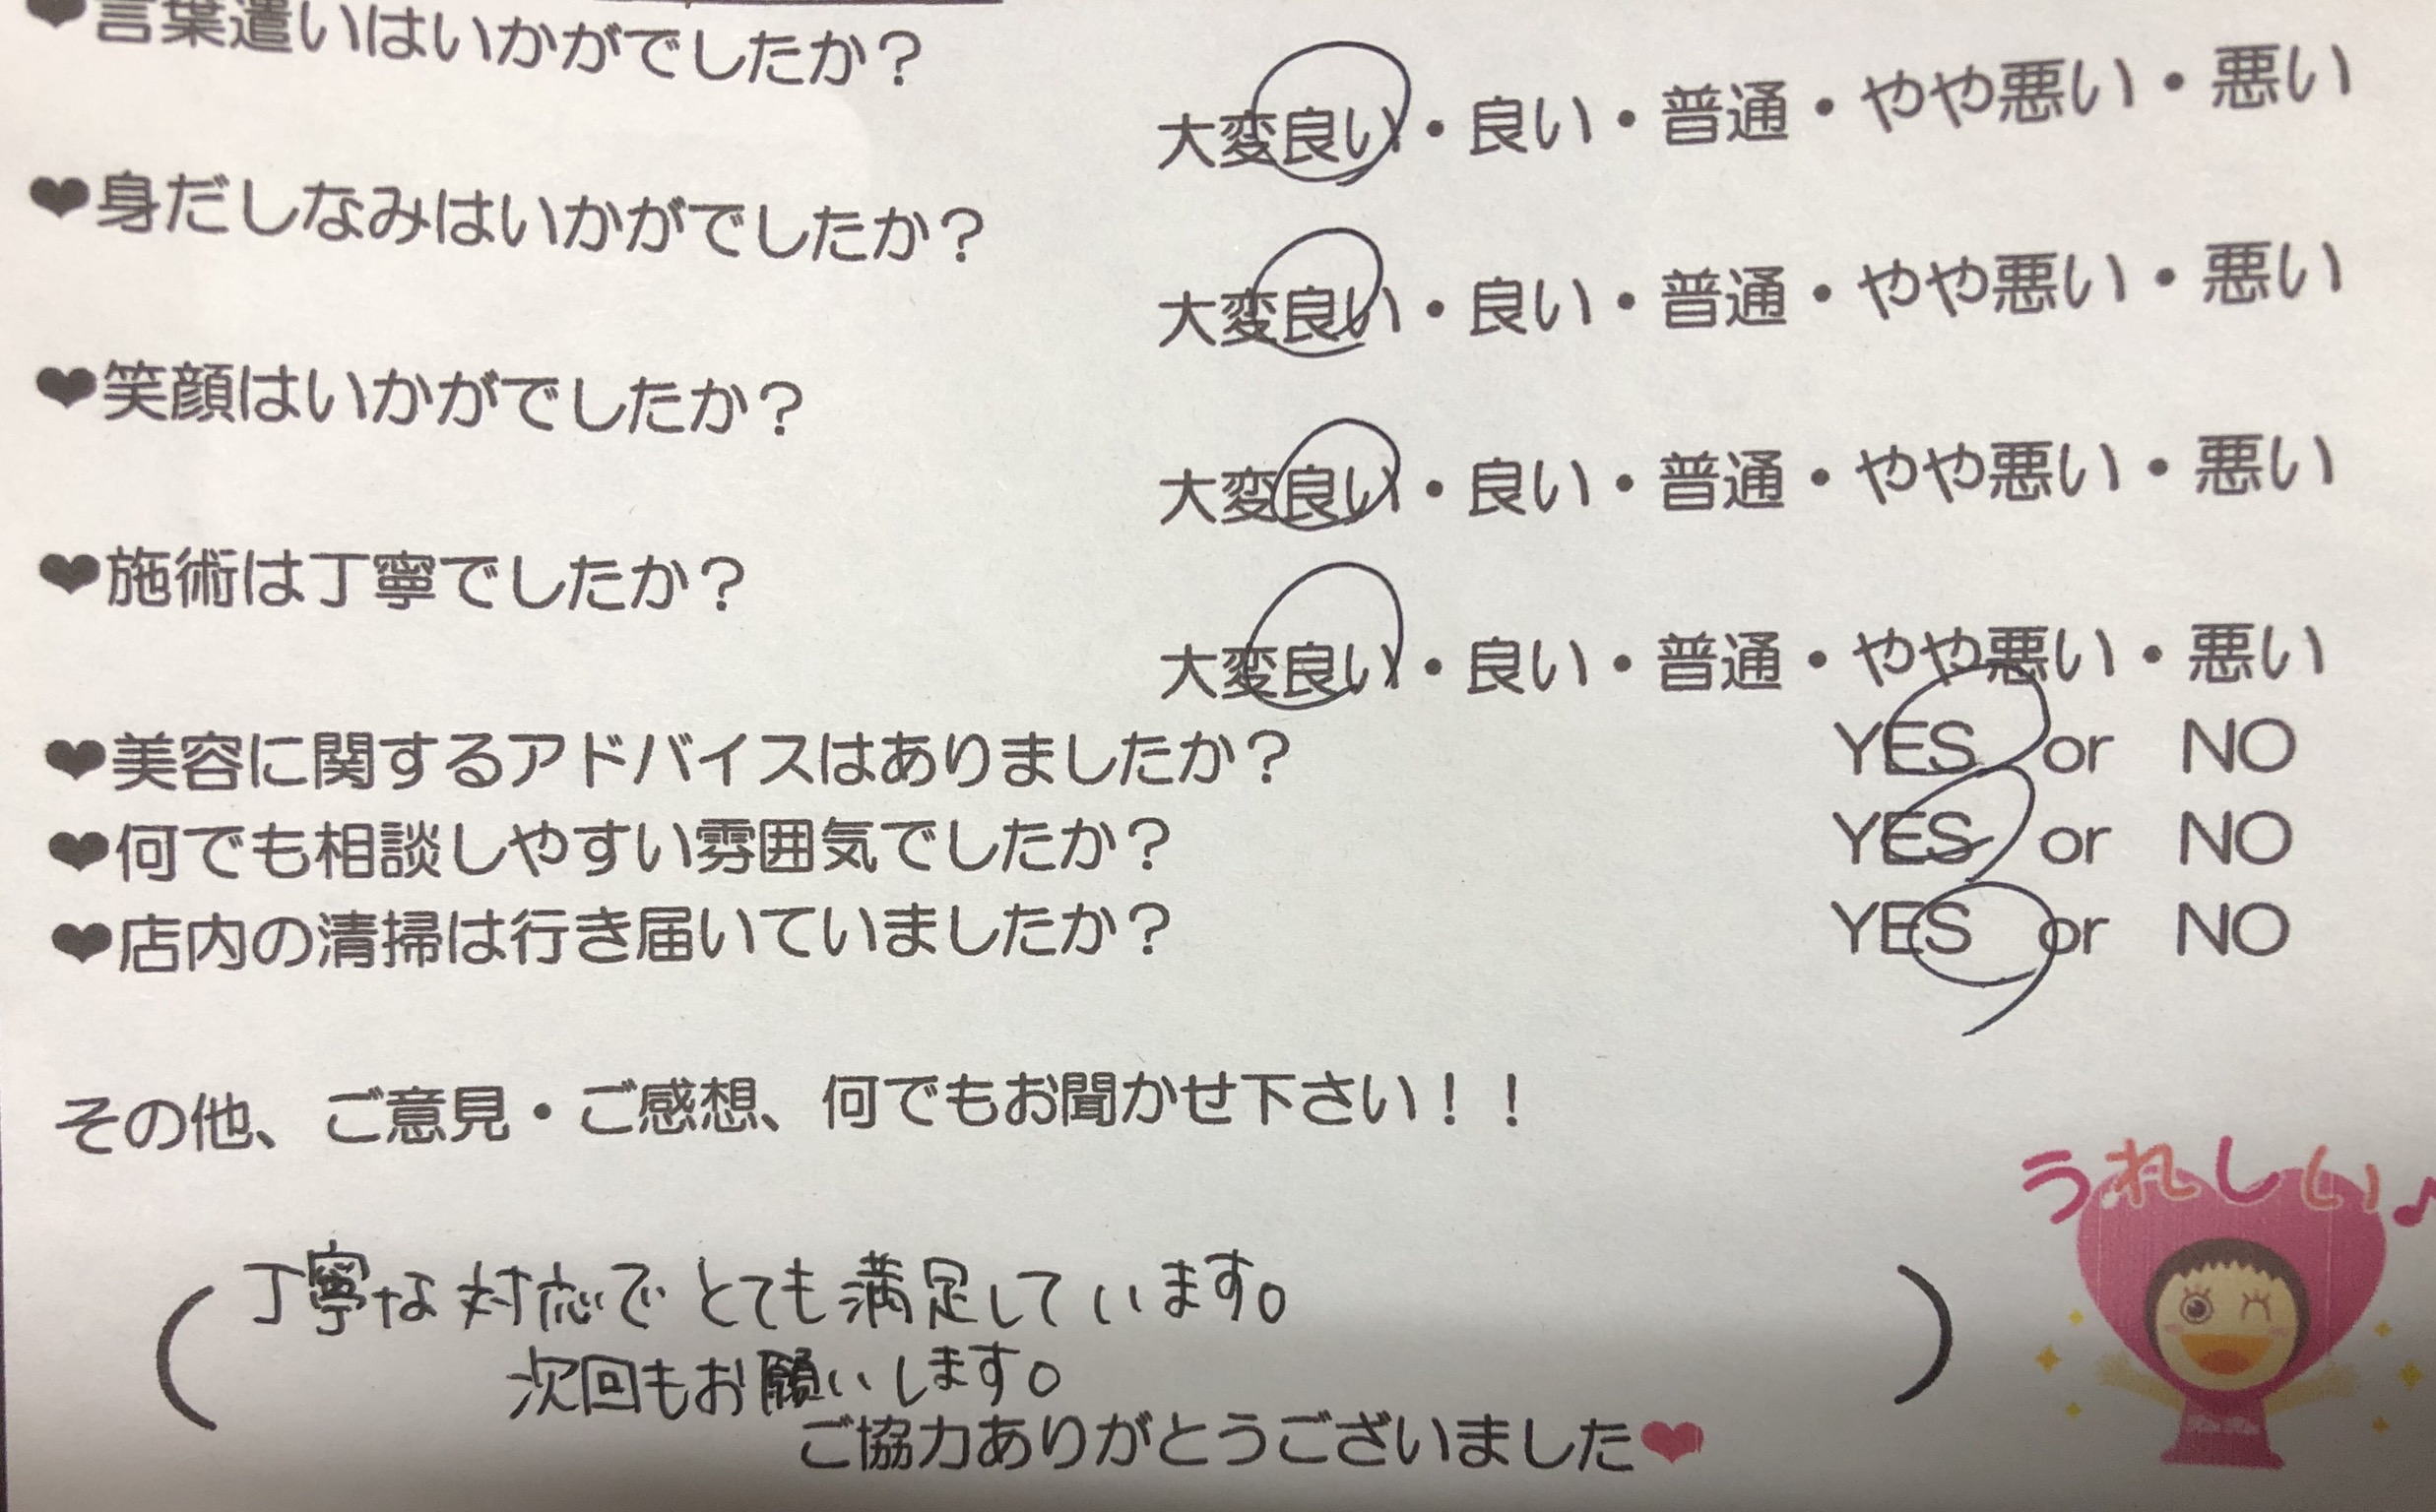 ❤言葉遣いはいかがでしたか？
大変良い・良い・普通・やや悪い・悪い
❤身だしなみはいかがでしたか？
大変良い・良い・普通・やや悪い・悪い
❤笑顔はいかがでしたか？
大変良い・良い・普通・やや悪い・悪い
❤施術は丁寧でしたか？
大変良い・良い・普通・やや悪い・悪い
❤美容に関するアドバイスはありましたか？ YES or NO
❤何でも相談しやすい雰囲気でしたか？ YES or NO
❤店内の清掃は行き届いていましたか？ YES or NO
その他、ご意見・ご感想、何でもお聞かせ下さい！！
うれしい♪
（丁寧な対応でとても満足しています。
次回もお願いします。）
ご協力ありがとうございました❤